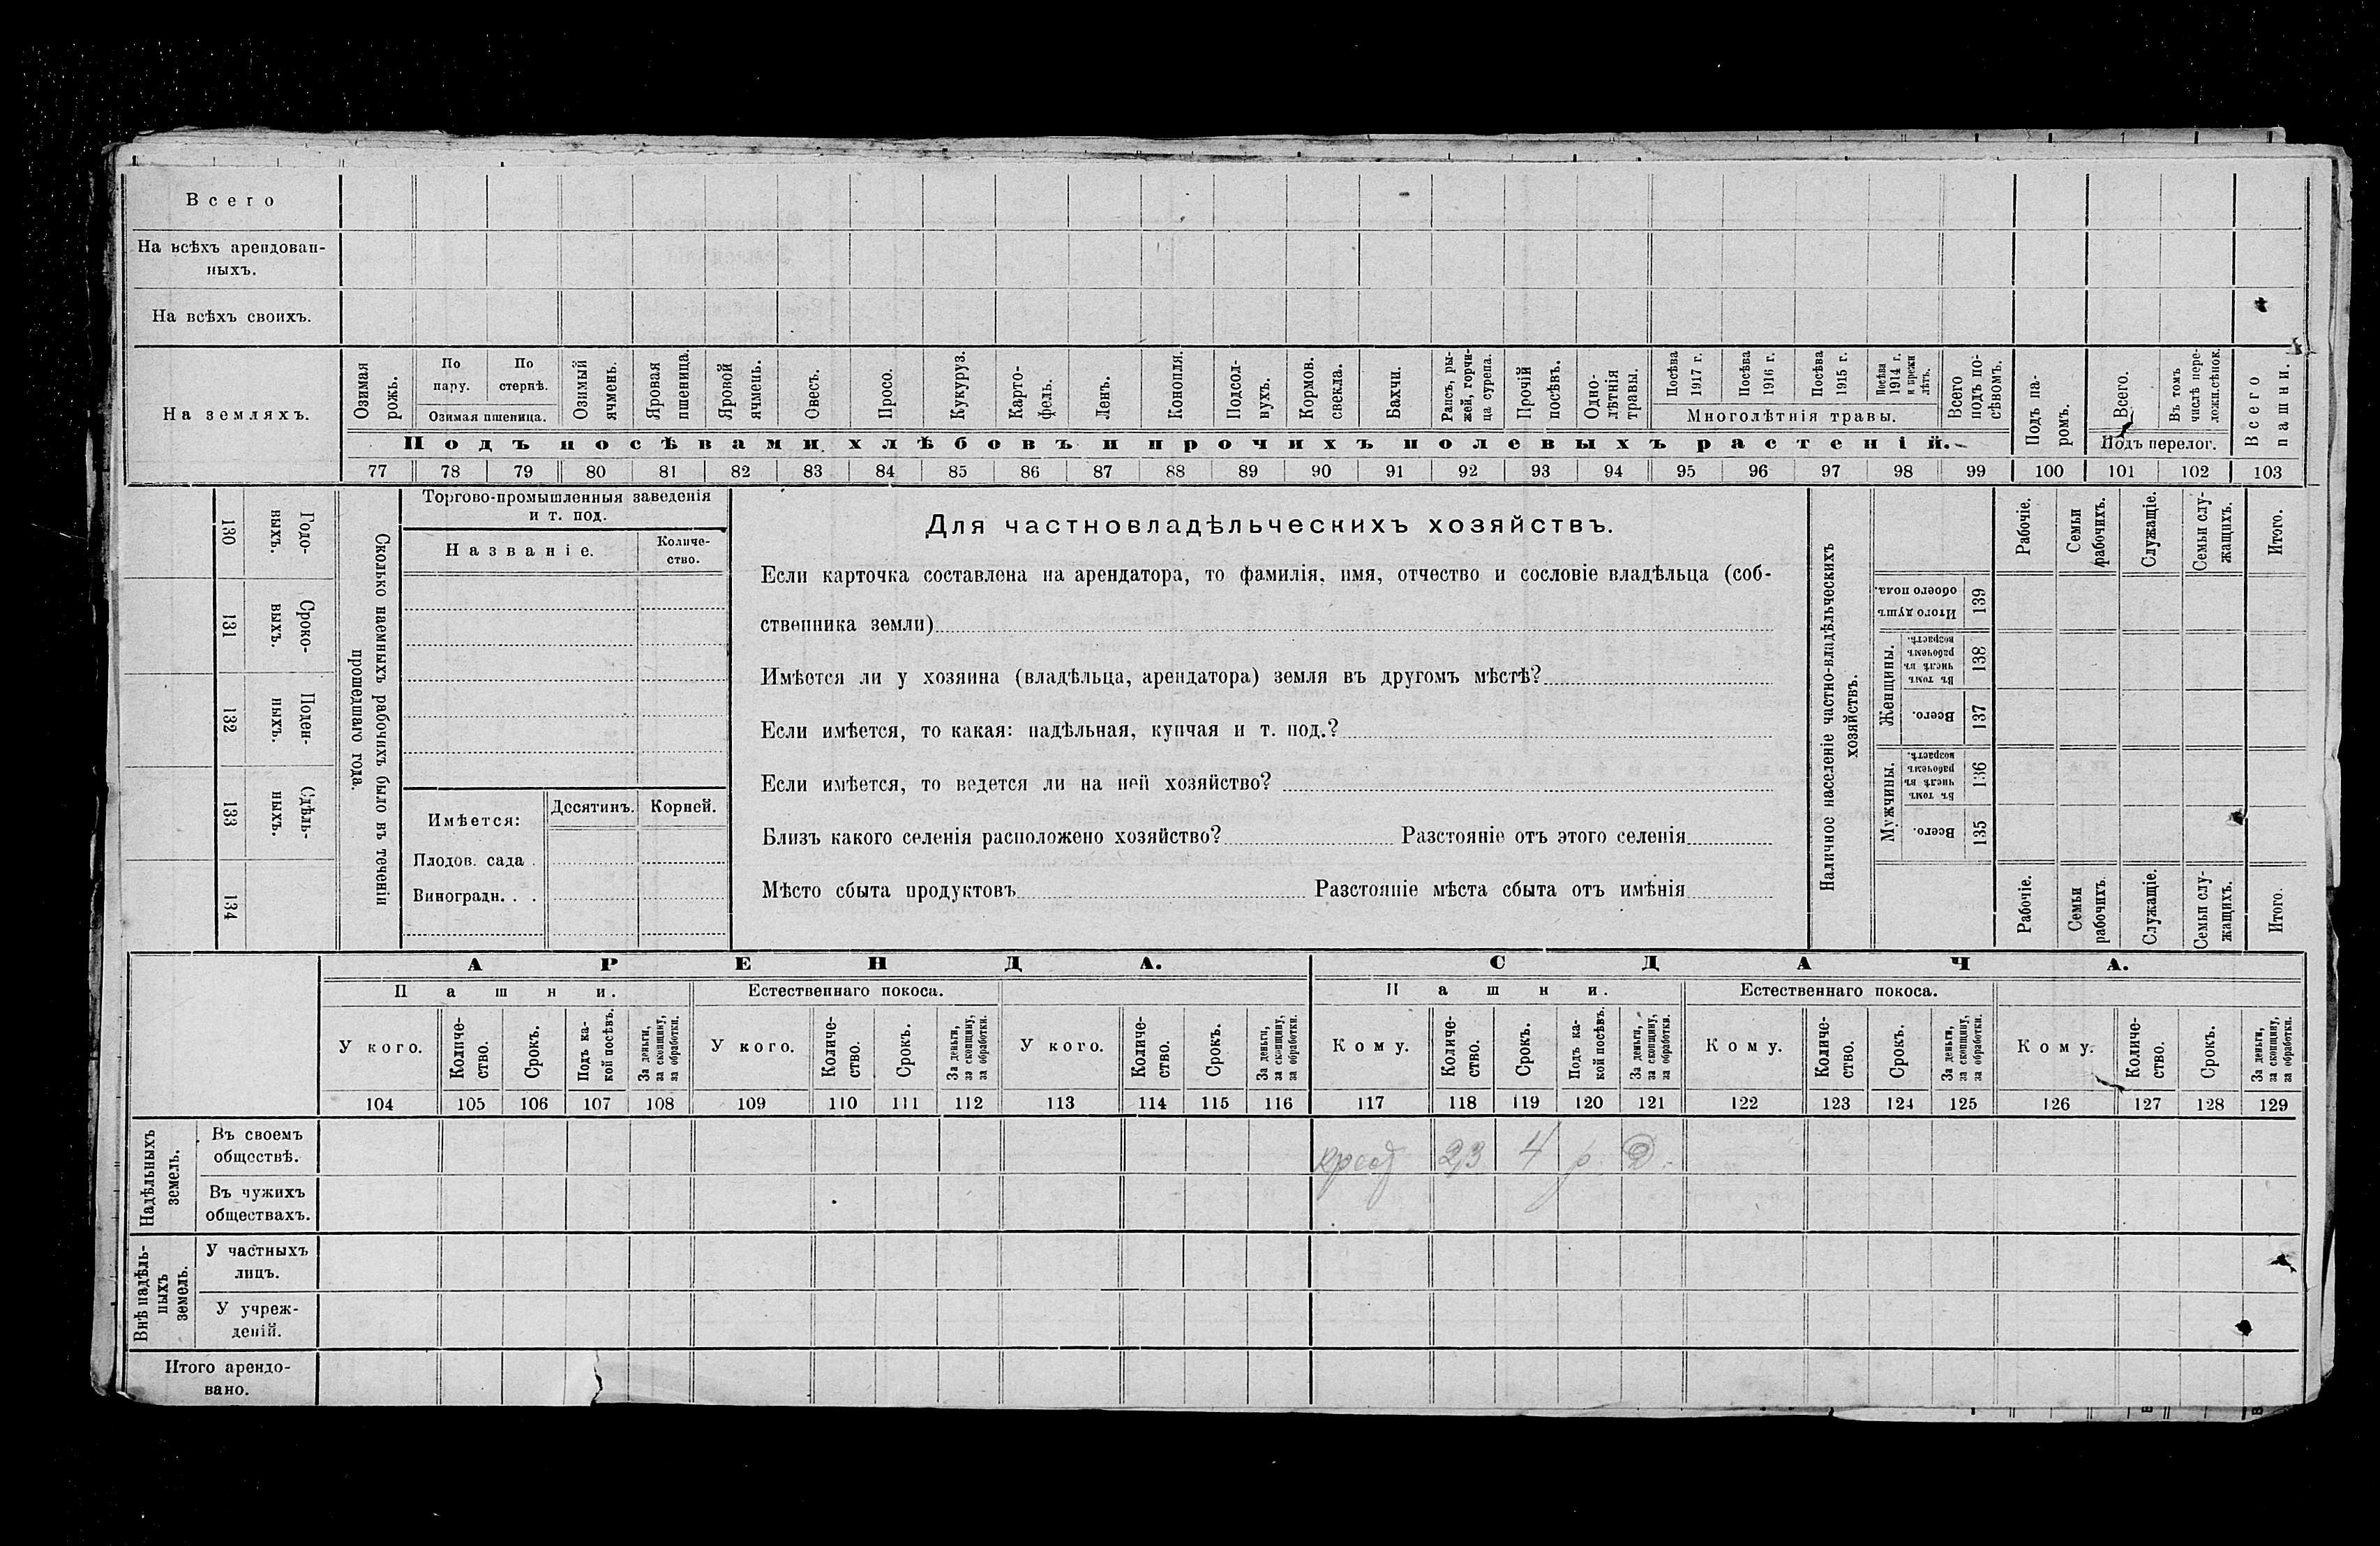 Всего
На всѣхъ арендован-
ныхъ.
На всѣхъ своихъ.
На земляхъ.
Озимая рожь.
По пару.
По стернѣ.
Озимая пшеница.
Озимый ячмень.
Яровая пшеница.
Яровой ячмень.
Овесъ.
Просо.
Кукуруз.
Карто-
фель.
Ленъ.
Конопля.
Подсол-
нухъ.
Кормов.
свекла.
Бахчи.
Рапсъ, ры-
жей, горчи-
ца сурепа.
Прочій
посѣвъ.
Одно-
лѣтнія
травы.
Посѣва
1917 г.
Посѣва
1916 г.
Посѣва
1915 г.
Посѣва
1914 г.
и прежн
лѣтъ.
Многолѣтнія травы.
Всего
подъ по-
сѣвомъ.
Подъ па-
ромъ.
Всего.
Въ томъ
числѣ пере-
ложн.сѣнок.
Подъ перелог.
Всего
пашни.
Подъ посѣвами хлѣбовъ и прочихъ полевыхъ растеній.
77 78 79 80 81 82 83 84 85 86 87 88 89 90 91 92 93 94 95 96 97 98 99 100 101 102 103
Годо-
выхъ.
130
Сроко-
выхъ.
131
Поден-
ныхъ.
132
Сдѣль-
ныхъ.
133
134
Сколько наемныхъ рабочихъ было въ теченіи
прошедшаго года.
Торгово-промышленныя заведенія
и т. под.
Названіе.
Количе-
ство.
Имѣется:
Десятинъ.
Корней.
Плодов. сада .
Виноградн. . .
Для частновладѣльческихъ хозяйствъ.
Если карточка составлена на арендатора, то фамилія, имя, отчество и сословіе владѣльца (соб-
ственника земли)
Имѣется ли у хозяина (владѣльца, арендатора) земля въ другомъ мѣстѣ?
Если имѣется, то какая: надѣльная, купчая и т. под.?
Если имѣется, то ведется ли на ней хозяйство?
Близъ какого селенія расположено хозяйство? Разстояніе отъ этого селенія
Мѣсто сбыта продуктовъ Разстояніе мѣста сбыта отъ имѣнія
Наличное населеніе частно-владѣльческихъ
хозяйствъ.
Рабочіе.
Семьи
рабочихъ.
Служащіе.
Семьи слу-
жащихъ.
Итого.
Итого душъ
обоего пола.
139
Женщины.
Въ томъ
числѣ въ
рабочемъ
возрастѣ.
138
Всего.
137
Мужчины.
Въ томъ
числѣ въ
рабочемъ
возрастѣ.
136
Всего.
135
Рабочіе.
Семьи
рабочихъ.
Служащіе.
Семьи слу-
жащихъ.
Итого.
АРЕНДА.
СДАЧА.
Пашни.
Естественнаго покоса.
Пашни.
Естественнаго покоса.
У кого.
Количе-
ство.
Срокъ.
Подъ ка-
кой посѣвъ.
За деньги,
за скопщину,
за обработки.
У кого.
Количе-
ство.
Срокъ.
За деньги,
за скопщину,
за обработки.
У кого.
Количе-
ство.
Срокъ.
За деньги,
за скопщину,
за обработки.
Кому.
Количе-
ство.
Срокъ.
Подъ ка-
кой посѣвъ.
За деньги,
за скопщину,
за обработки.
Кому.
Количе-
ство.
Срокъ.
За деньги,
за скопщину,
за обработки.
Кому.
Количе-
ство.
Срокъ.
За деньги,
за скопщину,
за обработки.
104 105 106 107 108 109 110 111 112 113 114 115 116 117 118 119 120 121 122 123 124 125 126 127 128 129
Надѣльныхъ
земель.
Въ своемъ
обществѣ.
23 4 р. Д.
Въ чужихъ
обществахъ.
Внѣ надѣль-
ныхъ
земель.
У частныхъ
лицъ.
У учреж-
деній.
Итого арендо-
вано.